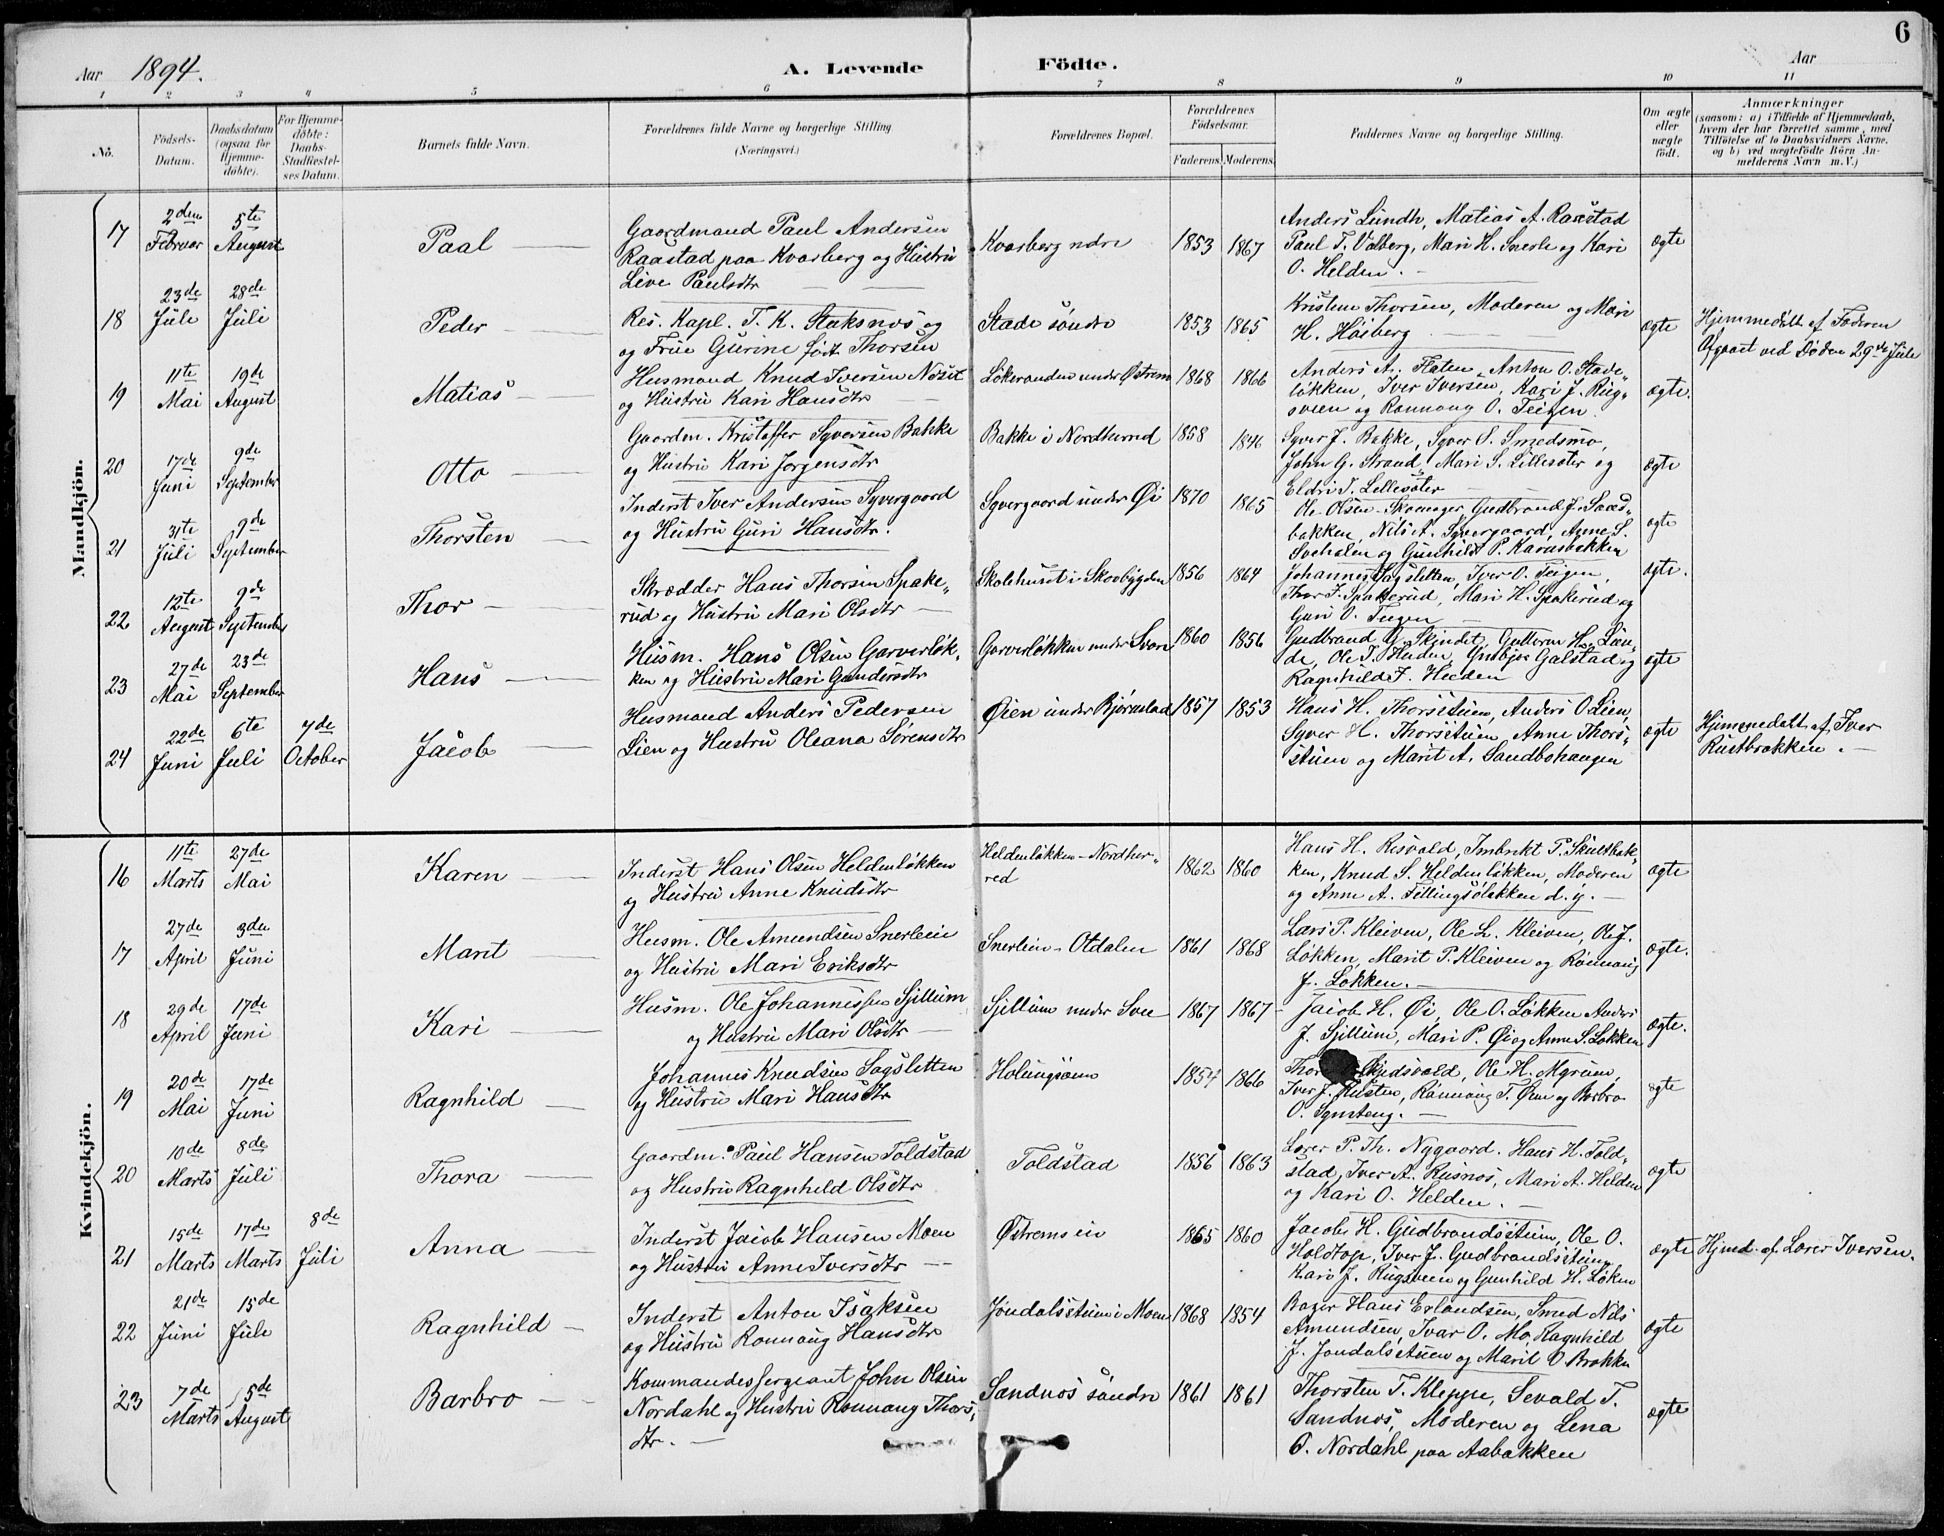 6
Aar 1894. A. Levende Födte. Aar
1 2 3 4 5 6 7 8 9 10 11
No.
Födsels-
Datum.
Daabsdatum
(ogsaa for
Hjemme-
döbte).
For Hjemme-
döbte:
Daabs-
Stadfæstel-
ses Datum.
Barnets fulde Navn.
Forældrenes fulde Navne og borgerlige Stilling
(Næringsvei.)
Forældrenes Bopæl.
Forældrenes
Födselsaar.
Faderens. Moderens.
Faddernes Navne og borgerlige Stilling.
Om ægte
eller
uægte
födt.
Anmærkninger
(saasom: a) i Tilfælde af Hjemmedaab,
hvem der har forrettet samme, med
Tilföielse af to Daabsvidners Navne,
og b) ved uægtefödte Börn An-
melderens Navn m. V.)
Mandkjön.
17
2den
Februar
5te
August
Paal
Gaardmand Paul Andersen
Raastad paa Kvarberg og Hustru
Live Paulsdtr
Kvarberg ndre
1853 1867
Anders Lundh, Matias A. Raastad
Paul T. Valberg, Mari H. Snerle og Kari
O. Helden.
ægte
18
23de
Juli
28de
Juli
Peder
Res. Kapl. T. K. Staksnes og
og Frue Gurine født Thorsen
Stade søndre
1853 1865
Kristine Thorsen, Moderen og Mari
H. Høiberg
ægte
Hjemmedøbt af Faderen
Afgaaet ved Døden 29de Juli
19
11te
Mai
19de
August
Matias
Husmand Knud Iversen
og Hustru Kari Hansdtr
Løkeranden under Østrem
1868 1866
Anders A. Flaten, Anton O. Stade-
løkken, Iver Iversen, Kari J. Rug-
sveen og Rønnaug O. Teigen.
ægte.
20
17de
Juni
9de
September
Otto
Gaardm. Kristoffer Syversen Bakke
og Hustru Kari Jørgensdtr
Bakke i Nordherred
1858 1846
Syver J. Bakke, Syver S. Smedsmo,
John G. Strand, Mari S. Lillesæter og
Eldri T. Lillesæter
ægte
21
31te
Juli
9de
September
Thorsten
Inderst Iver Andersen Syvergaard
og Hustru Guri Hansdtr.
Syvergaard under Øi
1870 1865
Ole Olsen Skomager, Gudbrand J.
bakken, Nils A. Syvergaard, Anne S.
Svehalen og Gunhild P.
ægte
22
12te
August
9de
September
Thor
Skrædder Hans Thorsen Spake-
rud og Hustru Mari Olsdtr
Skolehuset i Skovbygden
1856 1864
Johannes Sagsletten, Iver O. Teigen,
Thor J. Spakerud, Mari H. Spakerud og
Guri O. Teigen
ægte.
23
27de
Mai
23de
September
Hans
Husm. Hans Olsen Garverløk-
ken og Hustru Mari Gundersdtr
Garverløkken under Svare
1860 1856
Gudbrand G. Skjindet, Guttorm H.
de, Ole T. Heiden, Galstad og
Ragnhild J. Heiden
ægte
24
22de
Juni
6te
Juli
7de
October
Jacob
Husmand Anders Pedersen
Lien og Hustru Oleana Sørensdtr
Øien under Bjørnstad
1857 1853
Hans H. Thorsstuen, Anders O. Lien,
Syver H. Thorsstuen, Anne Thors-
stuen og Marit A. Sandbohaugen
ægte
Hjemmedøbt af Iver
Rustbrækken.
Kvindekjön.
16
11te
Marts
27de
Mai
Karen
Inderst Hans Olsen Heldenløkken
og Hustru Anne Knudsdtr
Heldenløkken-Nordher-
red
1862 1860
Hans H. Risvold, Imbrikt P. Skultbak-
ken, Knud S. Heldenløkken, Moderen
og Anne A. Tillingsøløkken d. y.
ægte
17
27de
April
3die
Juni
Marit
Husm. Ole Amundsen Snerleien
og Hustru Mari Eriksdtr
Snerleien-Ottdalen
1861 1868
Lars P. Kleiven, Ole L. Kleiven, Ole J.
Løkken, Marit P. Kleiven og Rønnaug
J. Løkken.
ægte.
18
29de
April
17de
Juni
Kari
Husm. Ole Johannessen Sjillum
og Hustru Mari Olsdtr
Sjillum under Sve
1867 1867
Jacob H. Øi, Ole O. Løkken Anders
J. Sjillum, Mari P. Øi og Anne S. Løkken
ægte.
19
20de
Mai
17de
Juni
Ragnhild
Johannes Knudsen Sagsletten
og Hustru Mari Hansdtr
Holungsøien
1854 1866
Thor Skjedsvold, Ole H. Myrum,
Iver J. Husten, Rønnaug T. Øien og Barbro
O. Synsteng.
ægte
20
10de
Marts
8de
Juli
Thora
Gaardm. Paul Hansen Toldstad
og Hustru Ragnhild Olsdtr
Toldstad
1856 1863
Lærer P. Th. Nygaard. Hans H. Told-
stad, Iver A. Rusnes, Mari A. Helden
og Kari O. Helden.
ægte
21
15de
Marts
17de
Marts
8de
Juli
Anna
Inderst Jacob Hansen Moen
og Hustru Anne Iversdtr
Østremseie
1865 1860
Jacob H. Gudbrandsstuen, Ole O.
Holdtop, Iver J. Gudbrandsstuen,
Kari J. Rugsveen og Gunhild H. Løken
ægte
Hjmd. af Lærer Iversen.
22
21de
Juni
15de
Jule
Ragnhild
Inderst Anton Isaksen
og Hustru Rønnaug Hansdtr
Jøndalsstuen i Moen
1868 1854
Bager Hans Erlandsen, Smed Nils
Amundsen, Ivar O. Mo, Ragnhild
J. Jøndalsstuen og Marit O Brækken
ægte
23
7de
Marts
5de
August
Barbro
Kommandersergeant John Olsen
Nordahl og Hustru Rønnaug Thors-
dtr.
Sandnes søndre
1861 1861
Thorsten T. Kleppe, Sevald T.
Sandnes, Moderen og Lena
O. Nordahl paa Aabakken
ægte